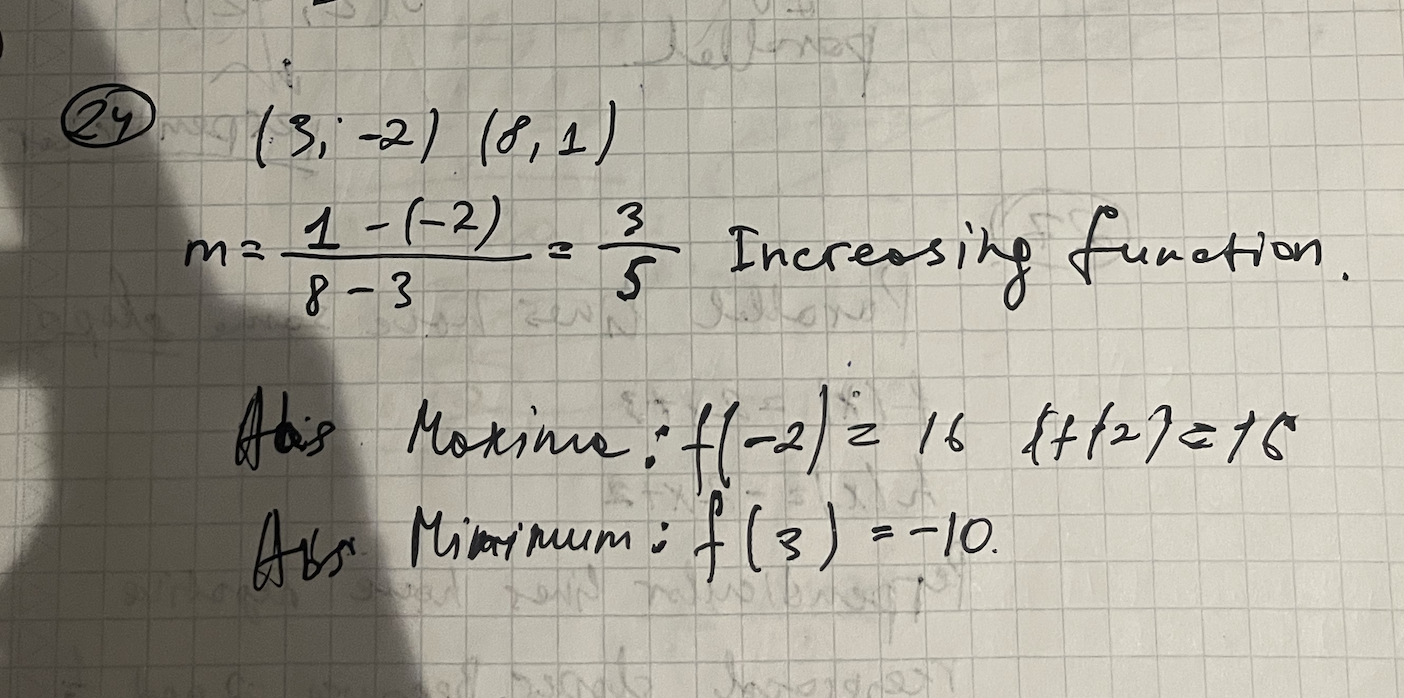 24 (3, -2) (8, 1)
m = 1 - (-2) / 8 - 3 = 3/5 Increasing function.
Abs Maxima : f(-2) = 16 f(2) = 16
Abs Minimum : f(3) = -10.